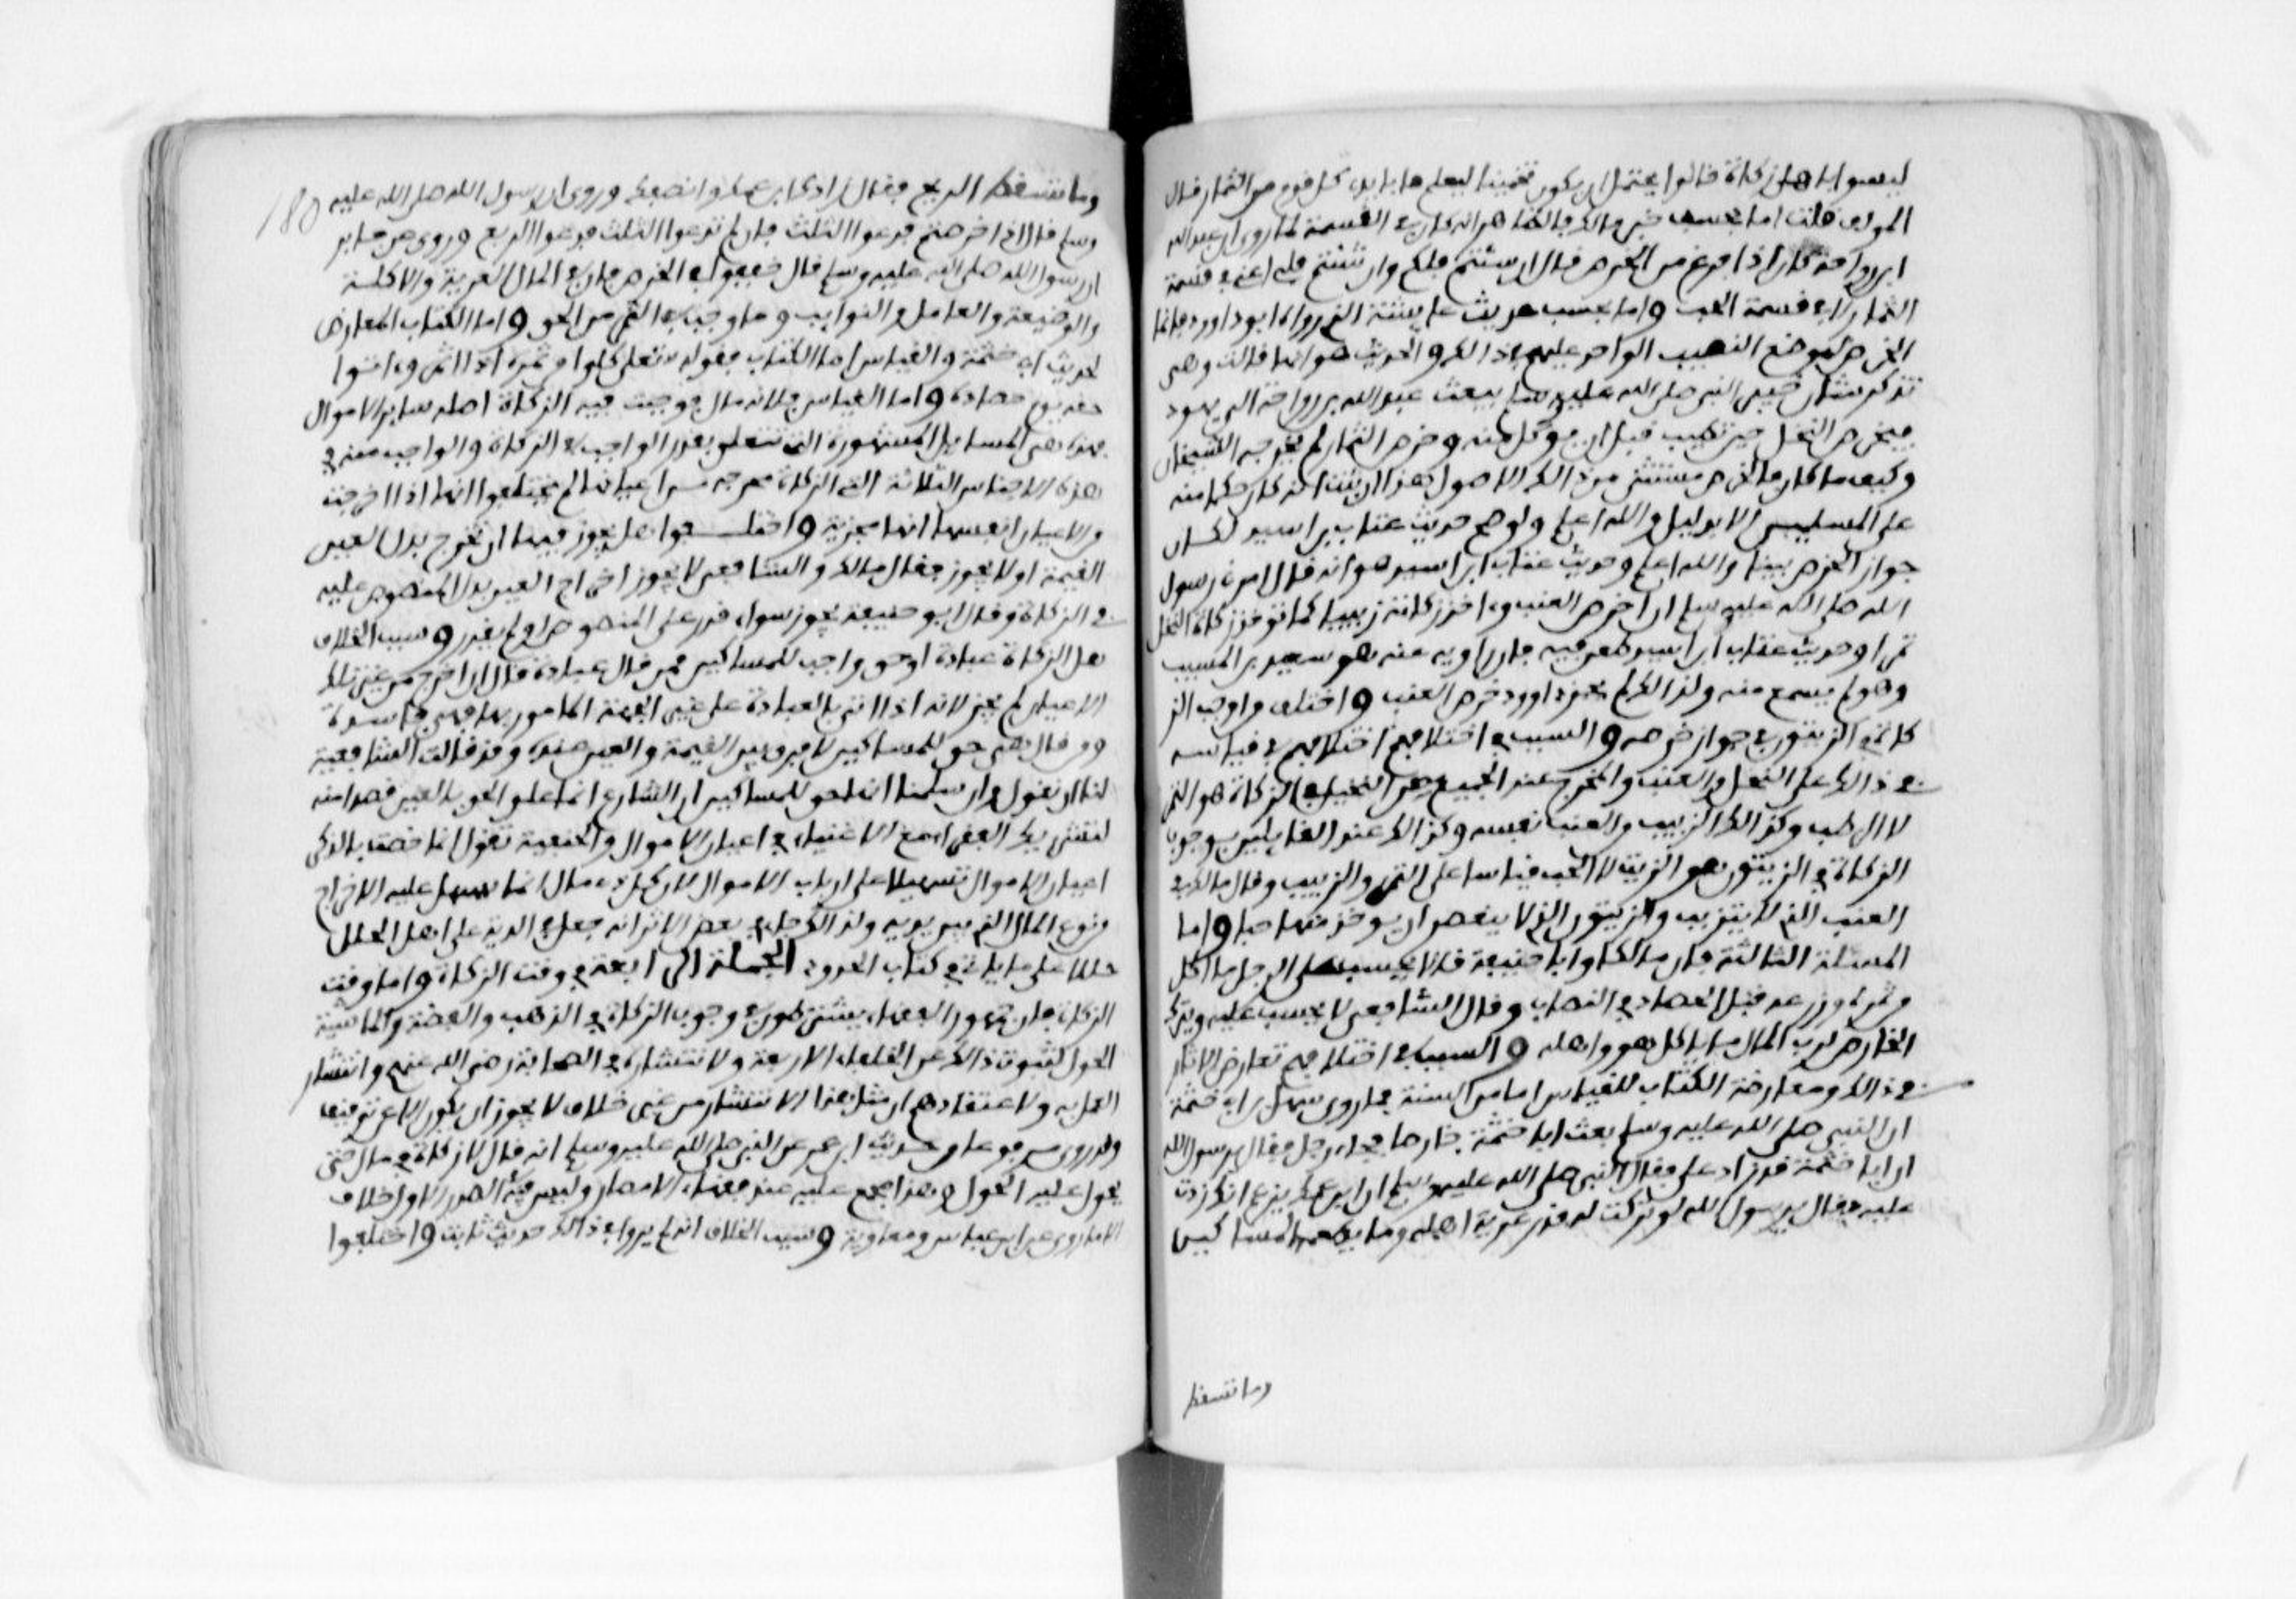 ليسوا باهل زكاة قالوا يحتمل ان يكون تخمينا ليعلم ما بايدي كل قوم من الثمار قال
المولف قلت اما بحسب خبر مالك فالظاهر انه كان في القسمة لما روي ان عبد الله
ابن رواحة كان اذا فرغ من الخرص قال ان شئتم فلكم وان شئتم فلي اعني في قسمة
الثمار لا في قسمة الحب واما بحسب حديث عايشة الذي رواه ابو داوود فانما
الخرص لموضع النصيب الواجب عليهم في ذالك والحديث هو انها قالت وهي
تذكر شان خيبر النبي صلى الله عليه وسلم يبعث عبد الله بن رواحة الى يهود
فيخرص النخل حين تطيب قبل ان يوكل منه وخرص الثمار لم يخرجه الشيخان
وكيف ما كان فالخرص مستثنى من ذالك الاصول هذا ان ثبت انه كان حكما منه
على المسلمين الا بدليل والله اعلم ولو صح حديث عتاب بن اسيد لكان
جواز الخرص بينا والله اعلم وحديث عتاب ابن اسيد هو انه قال امرني رسول
الله صلى الله عليه وسلم ان اخرص العنب وءاخذ زكاته زبيبا كما توخذ زكاة النخل
تمرا وحديث عتاب ابن اسيد طعن فيه فان راويه عنه هو سعيد بن المسيب
وهو لم يسمع منه ولذالك لم يجز داوود خرص العنب واختلف من اوجب الز
كاة في الزيتون في جواز خرصه والسبب في اختلافهم اختلافهم في قياسه
في ذالك على النخل والعنب والمخرج عند الجميع من النخيل في الزكاة هو التمر
لا الرطب وكذالك الزبيب من العنب نفسه وكذالك عند القايلين بوجوب
الزكاة في الزيتون هو الزيت لا الحب قياسا على التمر والزبيب وقال مالك في
العنب الذي لا يتزبب والزيتون الذي لا ينعصر ان يوخذ منهما حبا واما
المسئلة الثالثة فان مالكا وابا حنيفة قالا يحسب على الرجل ما اكل
من ثمره وزرعه قبل الحصاد في النصاب وقال الشافعي لا يحسب عليه ويترك
الخارص لرب المال ما ياكل هو واهله والسبب في اختلافهم تعارض الاثار
في ذالك ومعارضة الكتاب للقياس اما من السنة فما روى سهل بن ابي خثمة
ان النبي صلى الله عليه وسلم بعث ابا خثمة خارصا فجاء رجل فقال يرسول الله
ان ابا خثمة قد زاد علي فقال النبي صلى الله عليه وسلم ان ابن عمك يزعم انك زدت
عليه فقال يرسول الله لو تركت له قدر عرية اهله وما يطعمه المساكين
وما تسقط
180
وما تسقط الريح فقال زادك ابن عمك وانصفك وروي ان رسول الله صلى الله عليه
وسلم قال اذا خرصتم فدعوا الثلث فان لم تدعوا الثلث فدعوا الربع وروي عن جابر
ان رسول الله صلى الله عليه وسلم قال خففوا في الخرص فان في المال العرية والاكلة
والوصية والعامل والنوايب وما وجب في الثمر من الحق واما الكتاب المعارض
لحديث ابي خثمة والقياس اما الكتاب فقوله تعلى كلوا من ثمره اذا اثمر وءاتوا
حقه يوم حصاده واما القياس فلانه مال فوجبت فيه الزكاة اصله ساير الاموال
فهذه هي المسايل المشهورة التي تتعلق بقدر الواجب في الزكاة والواجب منه في
هذه الاجناس الثلاثة التي الزكاة مخرجة من اعيانها لم يختلفوا انها اذا اخرجت
من الاعيان انفسها انها مجزية واختلفوا هل يجوز فيها ان تخرج بدل العين
القيمة او لا يجوز فقال مالك والشافعي لا يجوز اخراج العين بدل المنصوص عليه
في الزكاة وقال ابو حنيفة يجوز سواء قدر على المنصوص او لم يقدر وسبب الخلاف
هل الزكاة عبادة او حق واجب للمساكين فمن قال عبادة قال ان اخرج من غير تلك
الاعيان لم يجز لانه اذا اتى بالعبادة على غير الجهة المامور بها فهي فاسدة
ومن قال هي حق للمساكين لا فرق بين القيمة والعين عنده وقد قالت الشافعية
لنا ان نقول وان سلمنا انها حق للمساكين ان الشارع انما علق الحق بالعين قصدا منه
لتشريك الفقراء مع الاغنياء في اعيان الاموال والحنفية تقول انما خصت بالذكر
اعيان الاموال تسهيلا على ارباب الاموال لان كل ذي مال انما يسهل عليه الاخراج
من نوع المال الذي بين يديه ولذالك جاء في بعض الاثر انه جعل في الدية على اهل الحلل
حللا على ما ياتي في كتاب الحدود الجملة الرابعة في وقت الزكاة واما وقت
الزكاة فان جمهور الفقهاء يشترطون في وجوب الزكاة في الذهب والفضة والماشية
الحول لثبوت ذالك عن الخلفاء الاربعة ولانتشاره في الصحابة رضي الله عنهم وانتشار
العمل به ولاعتقادهم ان مثل هذا الانتشار من غير خلاف لا يجوز ان يكون الا عن توقيف
وقد روي مرفوعا من حديث ابن عمر عن النبي صلى الله عليه وسلم انه قال لا زكاة في مال حتى
يحول عليه الحول وهذا مجمع عليه عند فقهاء الامصار وليس فيه في الصدر الاول خلاف
الا ما روي عن ابن عباس ومعاوية وسبب الخلاف انه لم يرد في ذالك حديث ثابت واختلفوا